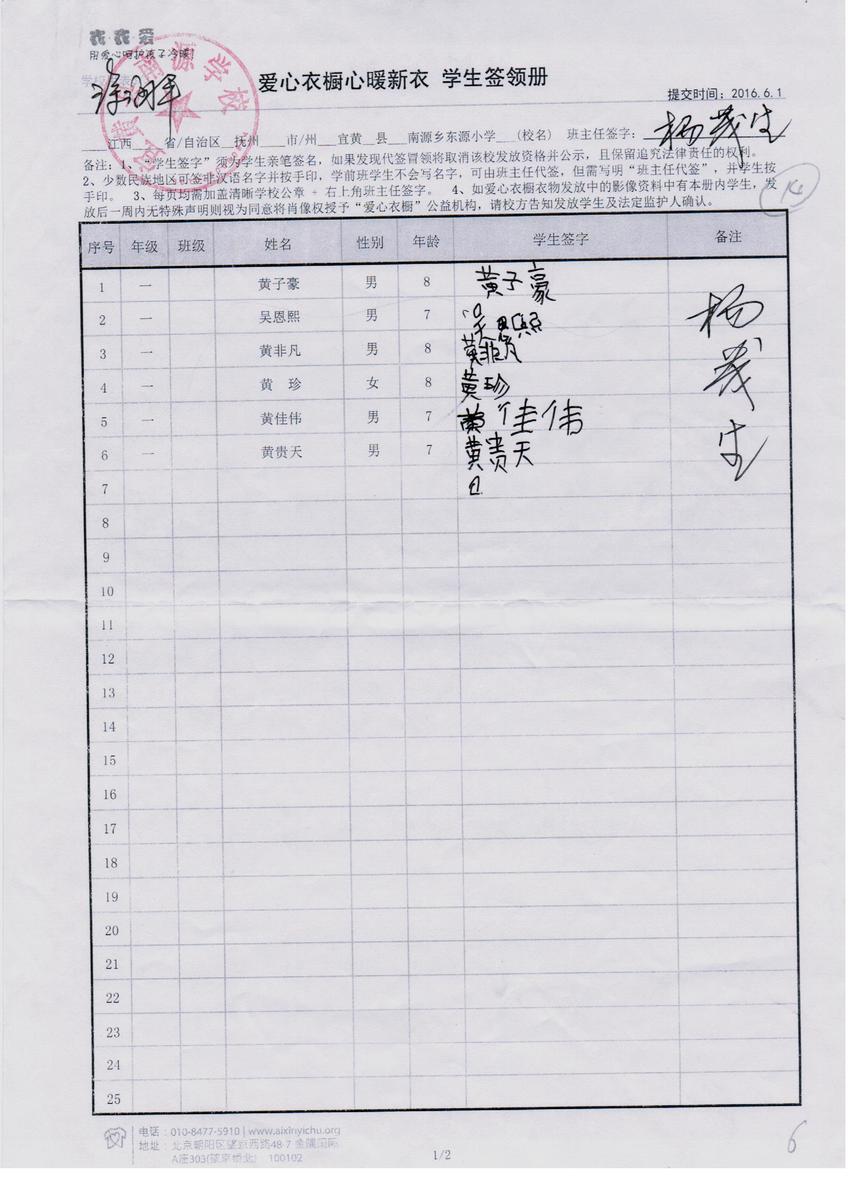 衣·衣·爱
用爱心呵护孩子冷暖!
爱心衣橱心暖新衣 学生签领册
提交时间：2016.6.1
江西 省/自治区 抚州 市/州 宜黄 县 南源乡东源小学 (校名) 班主任签字：杨茂生
备注：1、“学生签字”须为学生亲笔签名，如果发现代签冒领将取消该校发放资格并公示，且保留追究法律责任的权利。
2、少数民族地区可签非汉语名字并按手印，学前班学生不会写名字，可由班主任代签，但需写明“班主任代签”，并学生按
手印。 3、每页均需加盖清晰学校公章 + 右上角班主任签字。 4、如爱心衣橱衣物发放中的影像资料中有本册内学生，发
放后一周内无特殊声明则视为同意将肖像权授予“爱心衣橱”公益机构，请校方告知发放学生及法定监护人确认。
序号 年级 班级 姓名 性别 年龄 学生签字 备注
1 一 黄子豪 男 8 黄子豪
2 一 吴恩熙 男 7 吴恩熙
3 一 黄非凡 男 8 黄非凡
4 一 黄 珍 女 8 黄珍
5 一 黄佳伟 男 7 黄佳伟
6 一 黄贵天 男 7 黄贵天
杨茂生
7
8
9
10
11
12
13
14
15
16
17
18
19
20
21
22
23
24
25
电话：010-8477-5910 | www.aixinyichu.org
地址：北京朝阳区望京西路48-7 金隅国际
A座303(望京桥北) 100102
1/2
6